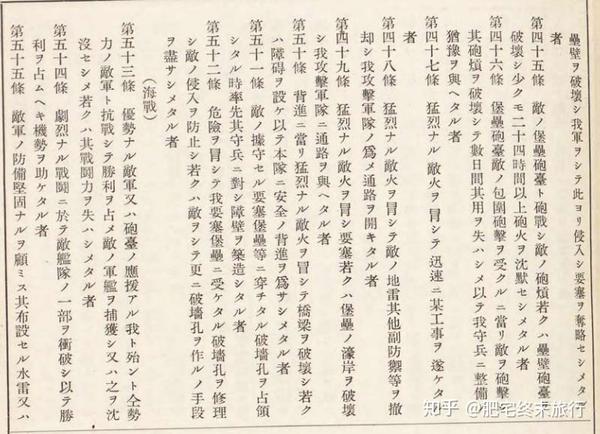 壘壁ヲ破壞シ我軍ヲシテ此ヨリ侵入シ要塞ヲ奪略セシメタル
者
第四十五條　敵ノ堡壘砲臺ト砲戰シ敵ノ砲熕若クハ壘壁砲臺ヲ
破壞シ少クモ二十四時間以上砲火ヲ沈默セシメタル者
第四十六條　堡壘砲臺敵ノ包圍砲擊ヲ受クルニ當リ敵ヲ砲擊シ
其砲熕ヲ破壞シテ數日間其用ヲ失ハシメ以テ我守兵ニ整備ノ
猶豫ヲ與ヘタル者
第四十七條　猛烈ナル敵火ヲ冒シテ迅速ニ某工事ヲ遂ケタル
者
第四十八條　猛烈ナル敵火ヲ冒シテ敵ノ地雷其他副防禦等ヲ撤
却シ我攻擊軍隊ノ爲メ通路ヲ開キタル者
第四十九條　猛烈ナル敵火ヲ冒シ要塞若クハ堡壘ノ濠岸ヲ破壞
シ我攻擊軍隊ニ通路ヲ與ヘタル者
第五十條　背進ニ當リ猛烈ナル敵火ヲ冒シテ橋梁ヲ破壞シ若ク
ハ障碍ヲ設ケ以テ本隊ニ安全ノ背進ヲ爲サシメタル者
第五十一條　敵ノ據守セル要塞堡壘等ニ穿チタル破墻孔ヲ占領
シタル時率先其守兵ニ對シ障壁ヲ築造シタル者
第五十二條　危險ヲ冒シテ我要塞堡壘ニ受ケタル破墻孔ヲ修理
シ敵ノ侵入ヲ防止シ若クハ敵ヲシテ更ニ破墻孔ヲ作ルノ手段
ヲ盡サシメタル者
（海戰）
第五十三條　優勢ナル敵軍又ハ砲臺ノ應援アル我ト始ント全勢
力ノ敵軍ト抗戰シテ勝利ヲ占メ敵ノ軍艦ヲ捕獲シ又ハ之ヲ沈
沒セシメ若クハ其戰鬪力ヲ失ハシメタル者
第五十四條　劇烈ナル戰鬪ニ於テ敵艦隊ノ一部ヲ衝破シ以テ勝
利ヲ占ムヘキ機勢ヲ助ケタル者
第五十五條　敵軍ノ防備堅固ナルヲ顧ミス其布設セル水雷又ハ
知乎 @肥宅终末旅行